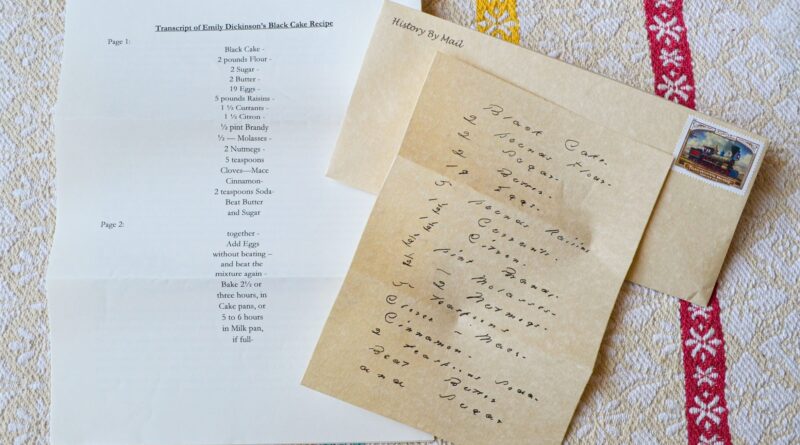 Transcript of Emily Dickinson's Black Cake Recipe
Page 1:
Black Cake -
2 pounds Flour -
2 Sugar -
2 Butter -
19 Eggs -
5 pounds Raisins -
1 ½ Currants -
1 ½ Citron -
½ pint Brandy
½ — Molasses -
2 Nutmegs -
5 teaspoons
Cloves—Mace
Cinnamon-
2 teaspoons Soda-
Beat Butter
and Sugar
Page 2:
together -
Add Eggs
without beating –
and beat the
mixture again -
Bake 2½ or
three hours, in
Cake pans, or
5 to 6 hours
in Milk pan,
if full-
History By Mail
Black Cake.
2 pounds Flour-
2 Sugar-
2 Butter-
19 Eggs-
5 pounds Raisins
1 ½ Currants-
1 ½ Citron-
½ pint Brandy-
½ Molasses-
2 Nutmegs-
5 teaspoons
Cloves - Mace-
Cinnamon-
2 teaspoons Soda-
Beat Butter
and Sugar